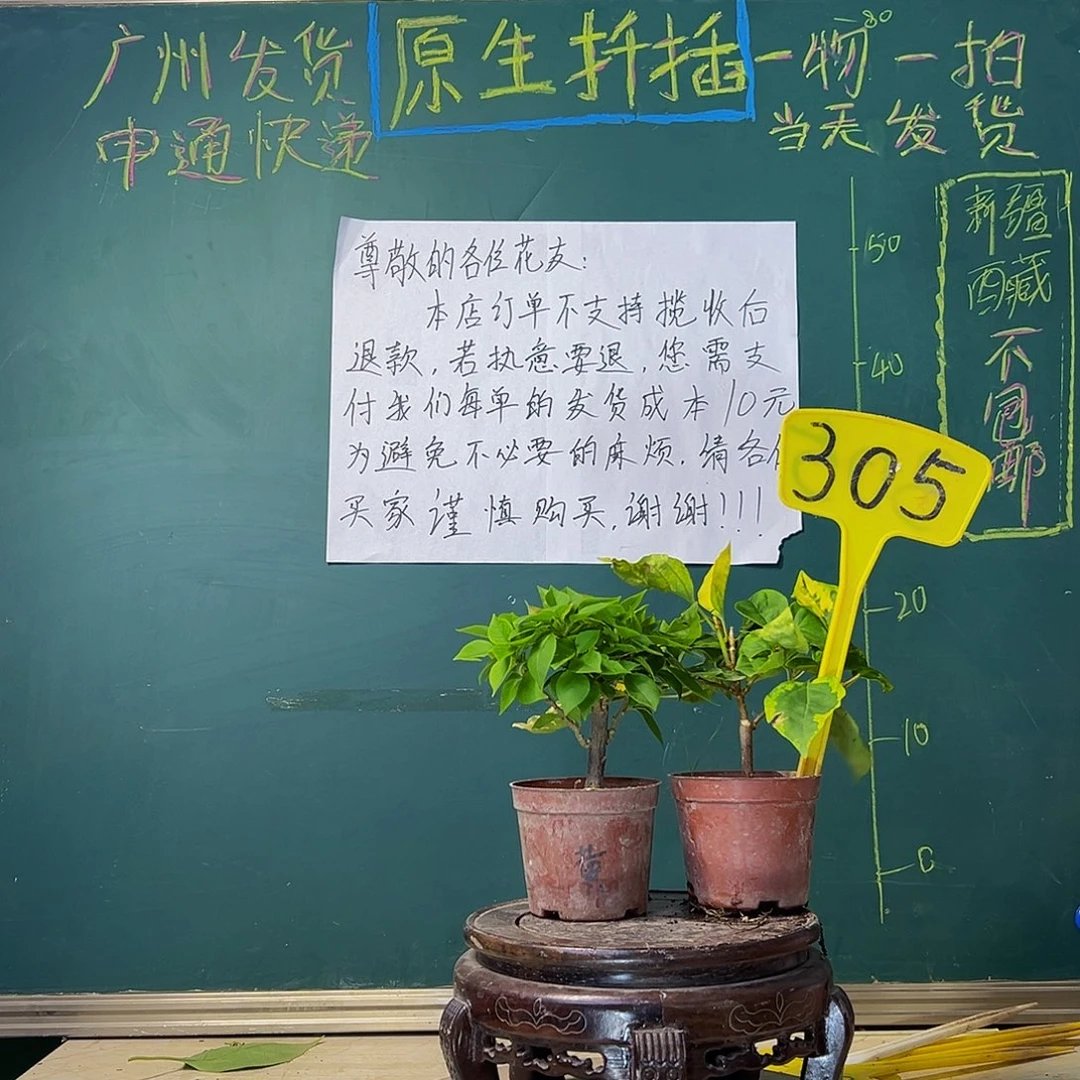 广州发货
申通快递
原生扦插
一物一拍
当天发货
新疆
西藏
不包邮
50
40
20
10
0
尊敬的各位花友:
本店订单不支持揽收后
退款,若执意要退,您需支
付我们每单的发货成本10元
为避免不必要的麻烦.请各位
买家谨慎购买,谢谢!!!
305